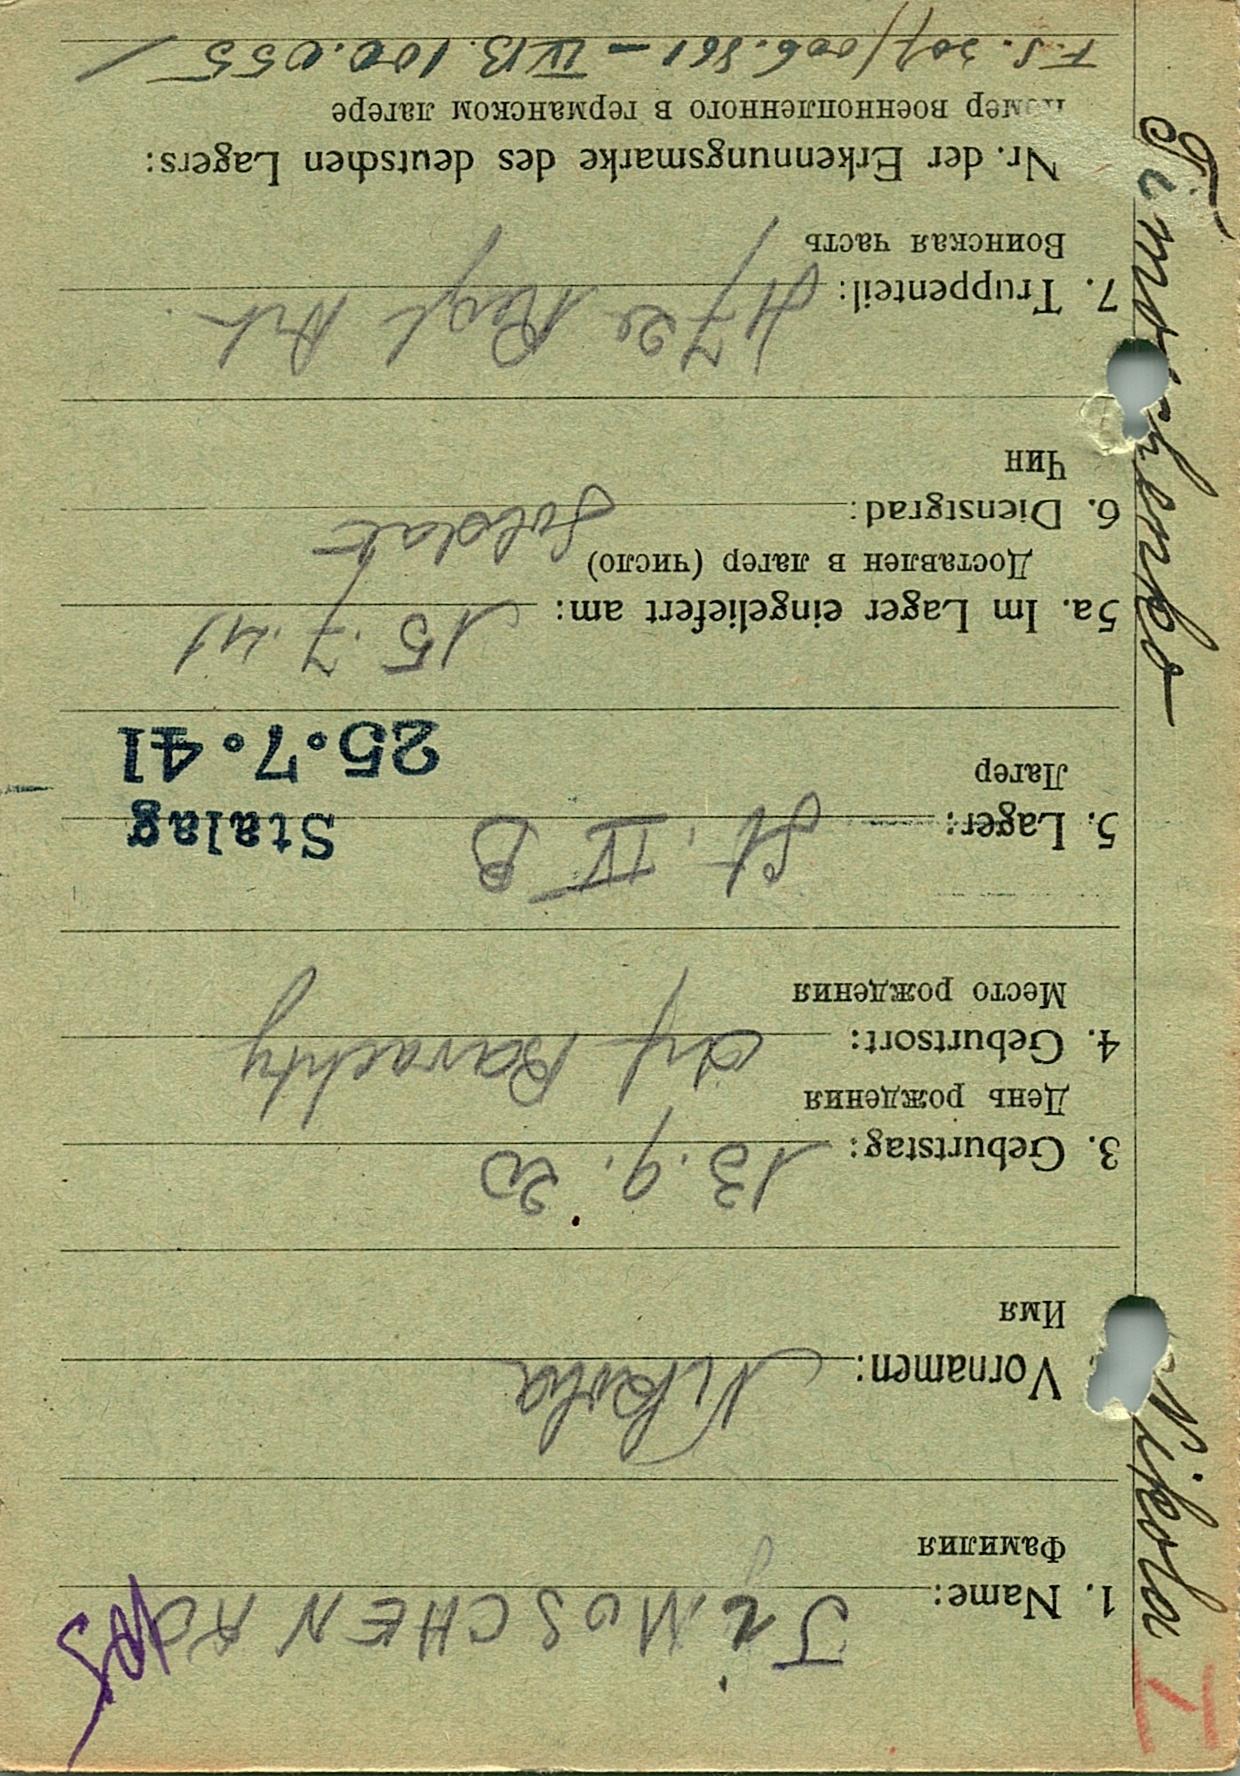 Timoschenko Nikola
I
1. Name: TiMOSCHENKO
Фамилия
Vornamen: Nikola
Имя
3. Geburtstag: 13.9.20
День рождения
4. Geburtsort:
Место рождения
5. Lager: St. IV B
Stalag
Лагер
25.7.41
5a. Im Lager eingeliefert am: 15.7.41
Доставлен в лагер (число)
6. Dienstgrad: Soldat
Чин
7. Truppenteil: 472 Regt Art
Воинская часть
Nr. der Erkennungsmarke des deutschen Lagers:
номер военнопленного в германском лагере
IVB. 100.055